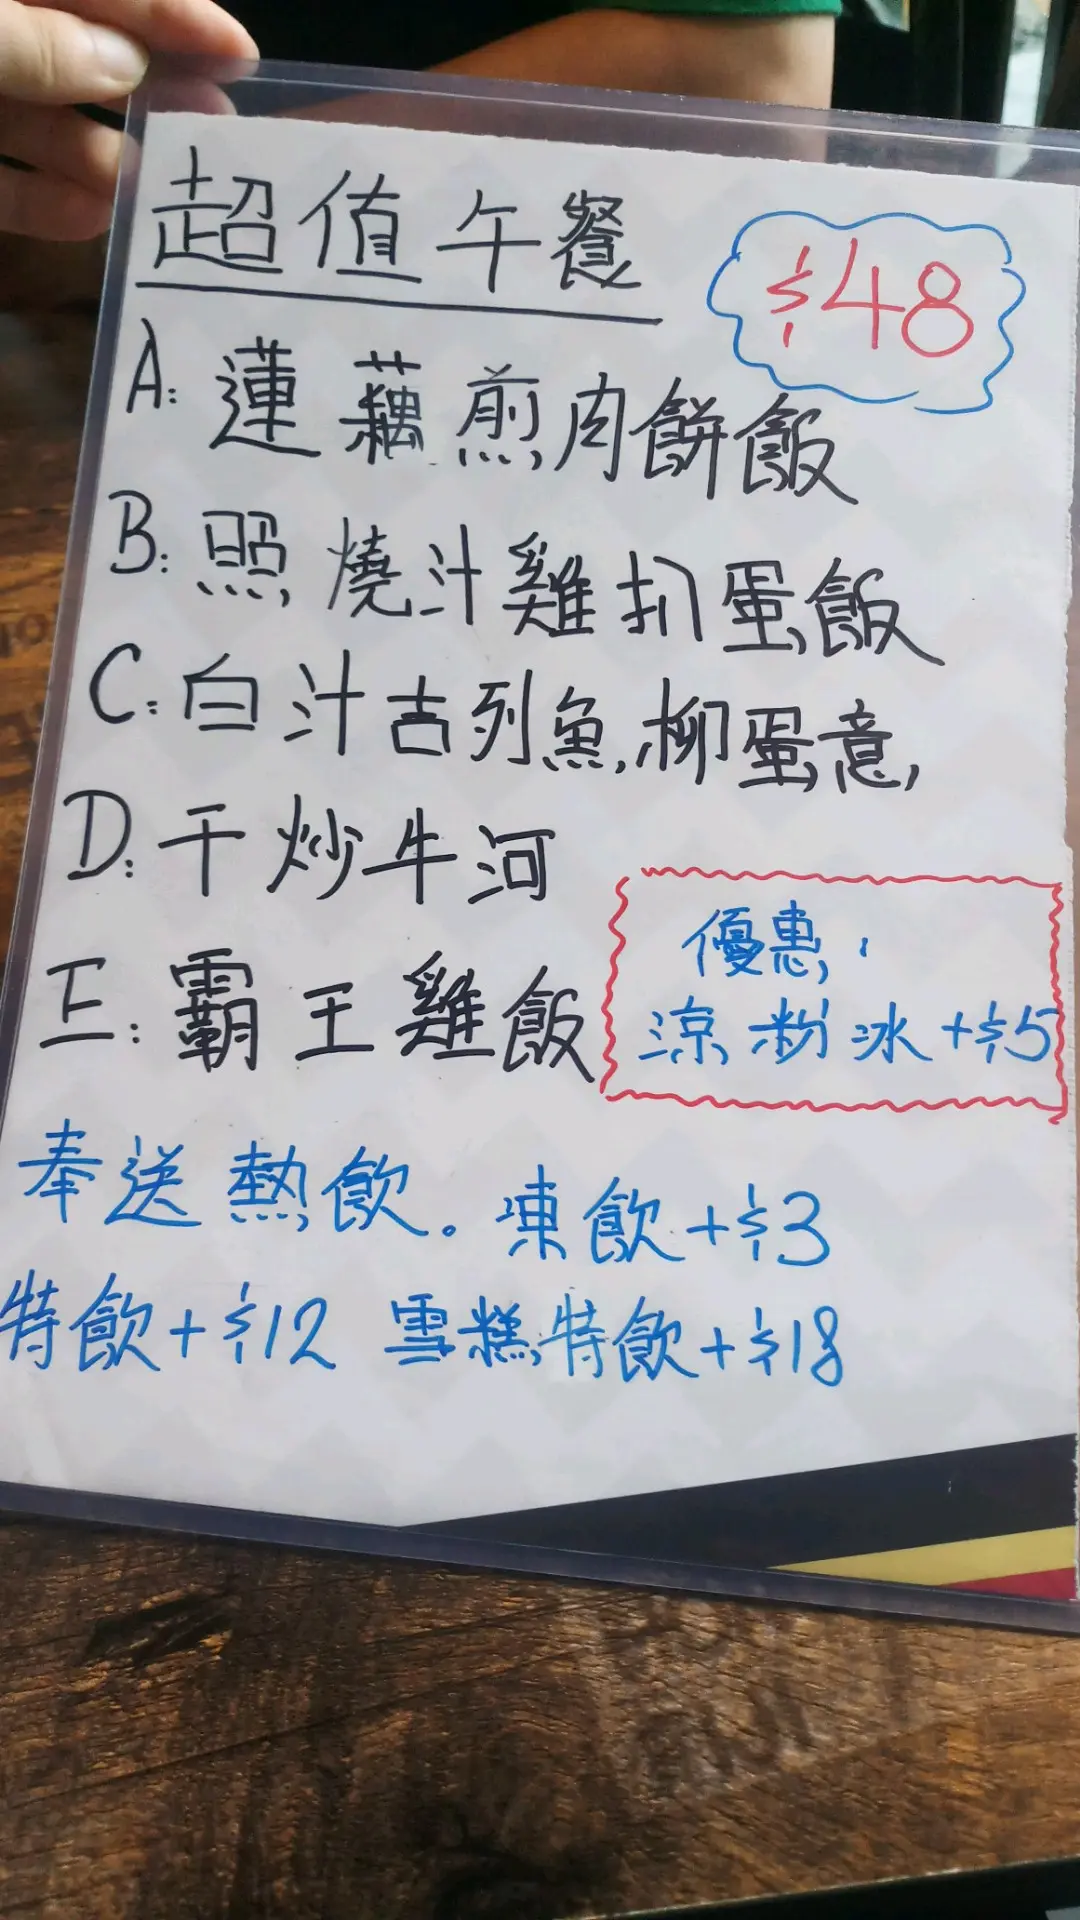 超值午餐
$48
A: 蓮藕煎肉餅飯
B: 照燒汁雞扒蛋飯
C: 白汁吉列魚柳蛋意
D: 干炒牛河
E: 霸王雞飯
優惠:
涼粉冰+$5
奉送熱飲。凍飲+$3
特飲+$12 雪糕特飲+$18